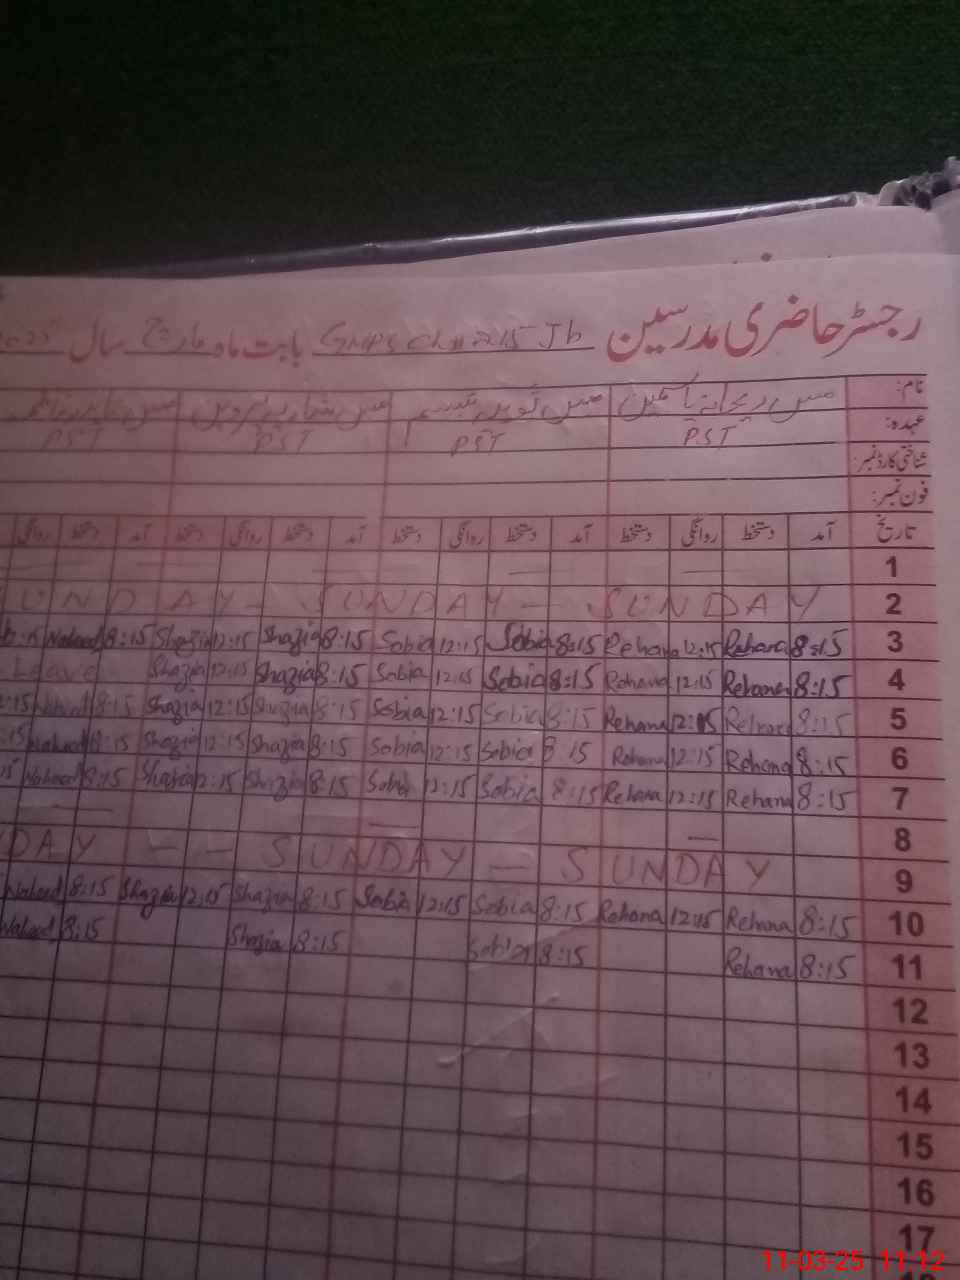 رجسٹر حاضری مدرسین GMPS Ch # 215 Jb بابت ماہ مارچ سال
نام: مس ریحانہ یاسمین مس ثوبیہ تبسم مس شازیہ پروین مس
عہدہ: PST PST PST PST
شناختی کارڈ نمبر:
فون نمبر:
تاریخ آمد دستخط روانگی دستخط آمد دستخط روانگی دستخط آمد دستخط روانگی دستخط آمد دستخط روانگی
1
UNDAY - SUNDAY - SUNDAY 2
Naheed 8:15 Shazia 12:15 Shazia 8:15 Sobia 12:15 Sobia 8:15 Rehana 12:15 Rehana 8:15 3
Leave Shazia 12:15 Shazia 8:15 Sobia 12:15 Sobia 8:15 Rehana 12:15 Rehana 8:15 4
2:15 Naheed 8:15 Shazia 12:15 Shazia 8:15 Sobia 12:15 Sobia 8:15 Rehana 12:15 Rehana 8:15 5
:15 Naheed 8:15 Shazia 12:15 Shazia 8:15 Sobia 12:15 Sobia 8:15 Rehana 12:15 Rehana 8:15 6
15 Naheed 8:15 Shazia 12:15 Shazia 8:15 Sobia 12:15 Sobia 8:15 Rehana 12:15 Rehana 8:15 7
8
DAY - - SUNDAY - SUNDAY 9
Naheed 8:15 Shazia 12:15 Shazia 8:15 Sobia 12:15 Sobia 8:15 Rehana 12:15 Rehana 8:15 10
Naheed 8:15 Shazia 8:15 Sobia 8:15 Rehana 8:15 11
12
13
14
15
16
17
11-03-25 11:12